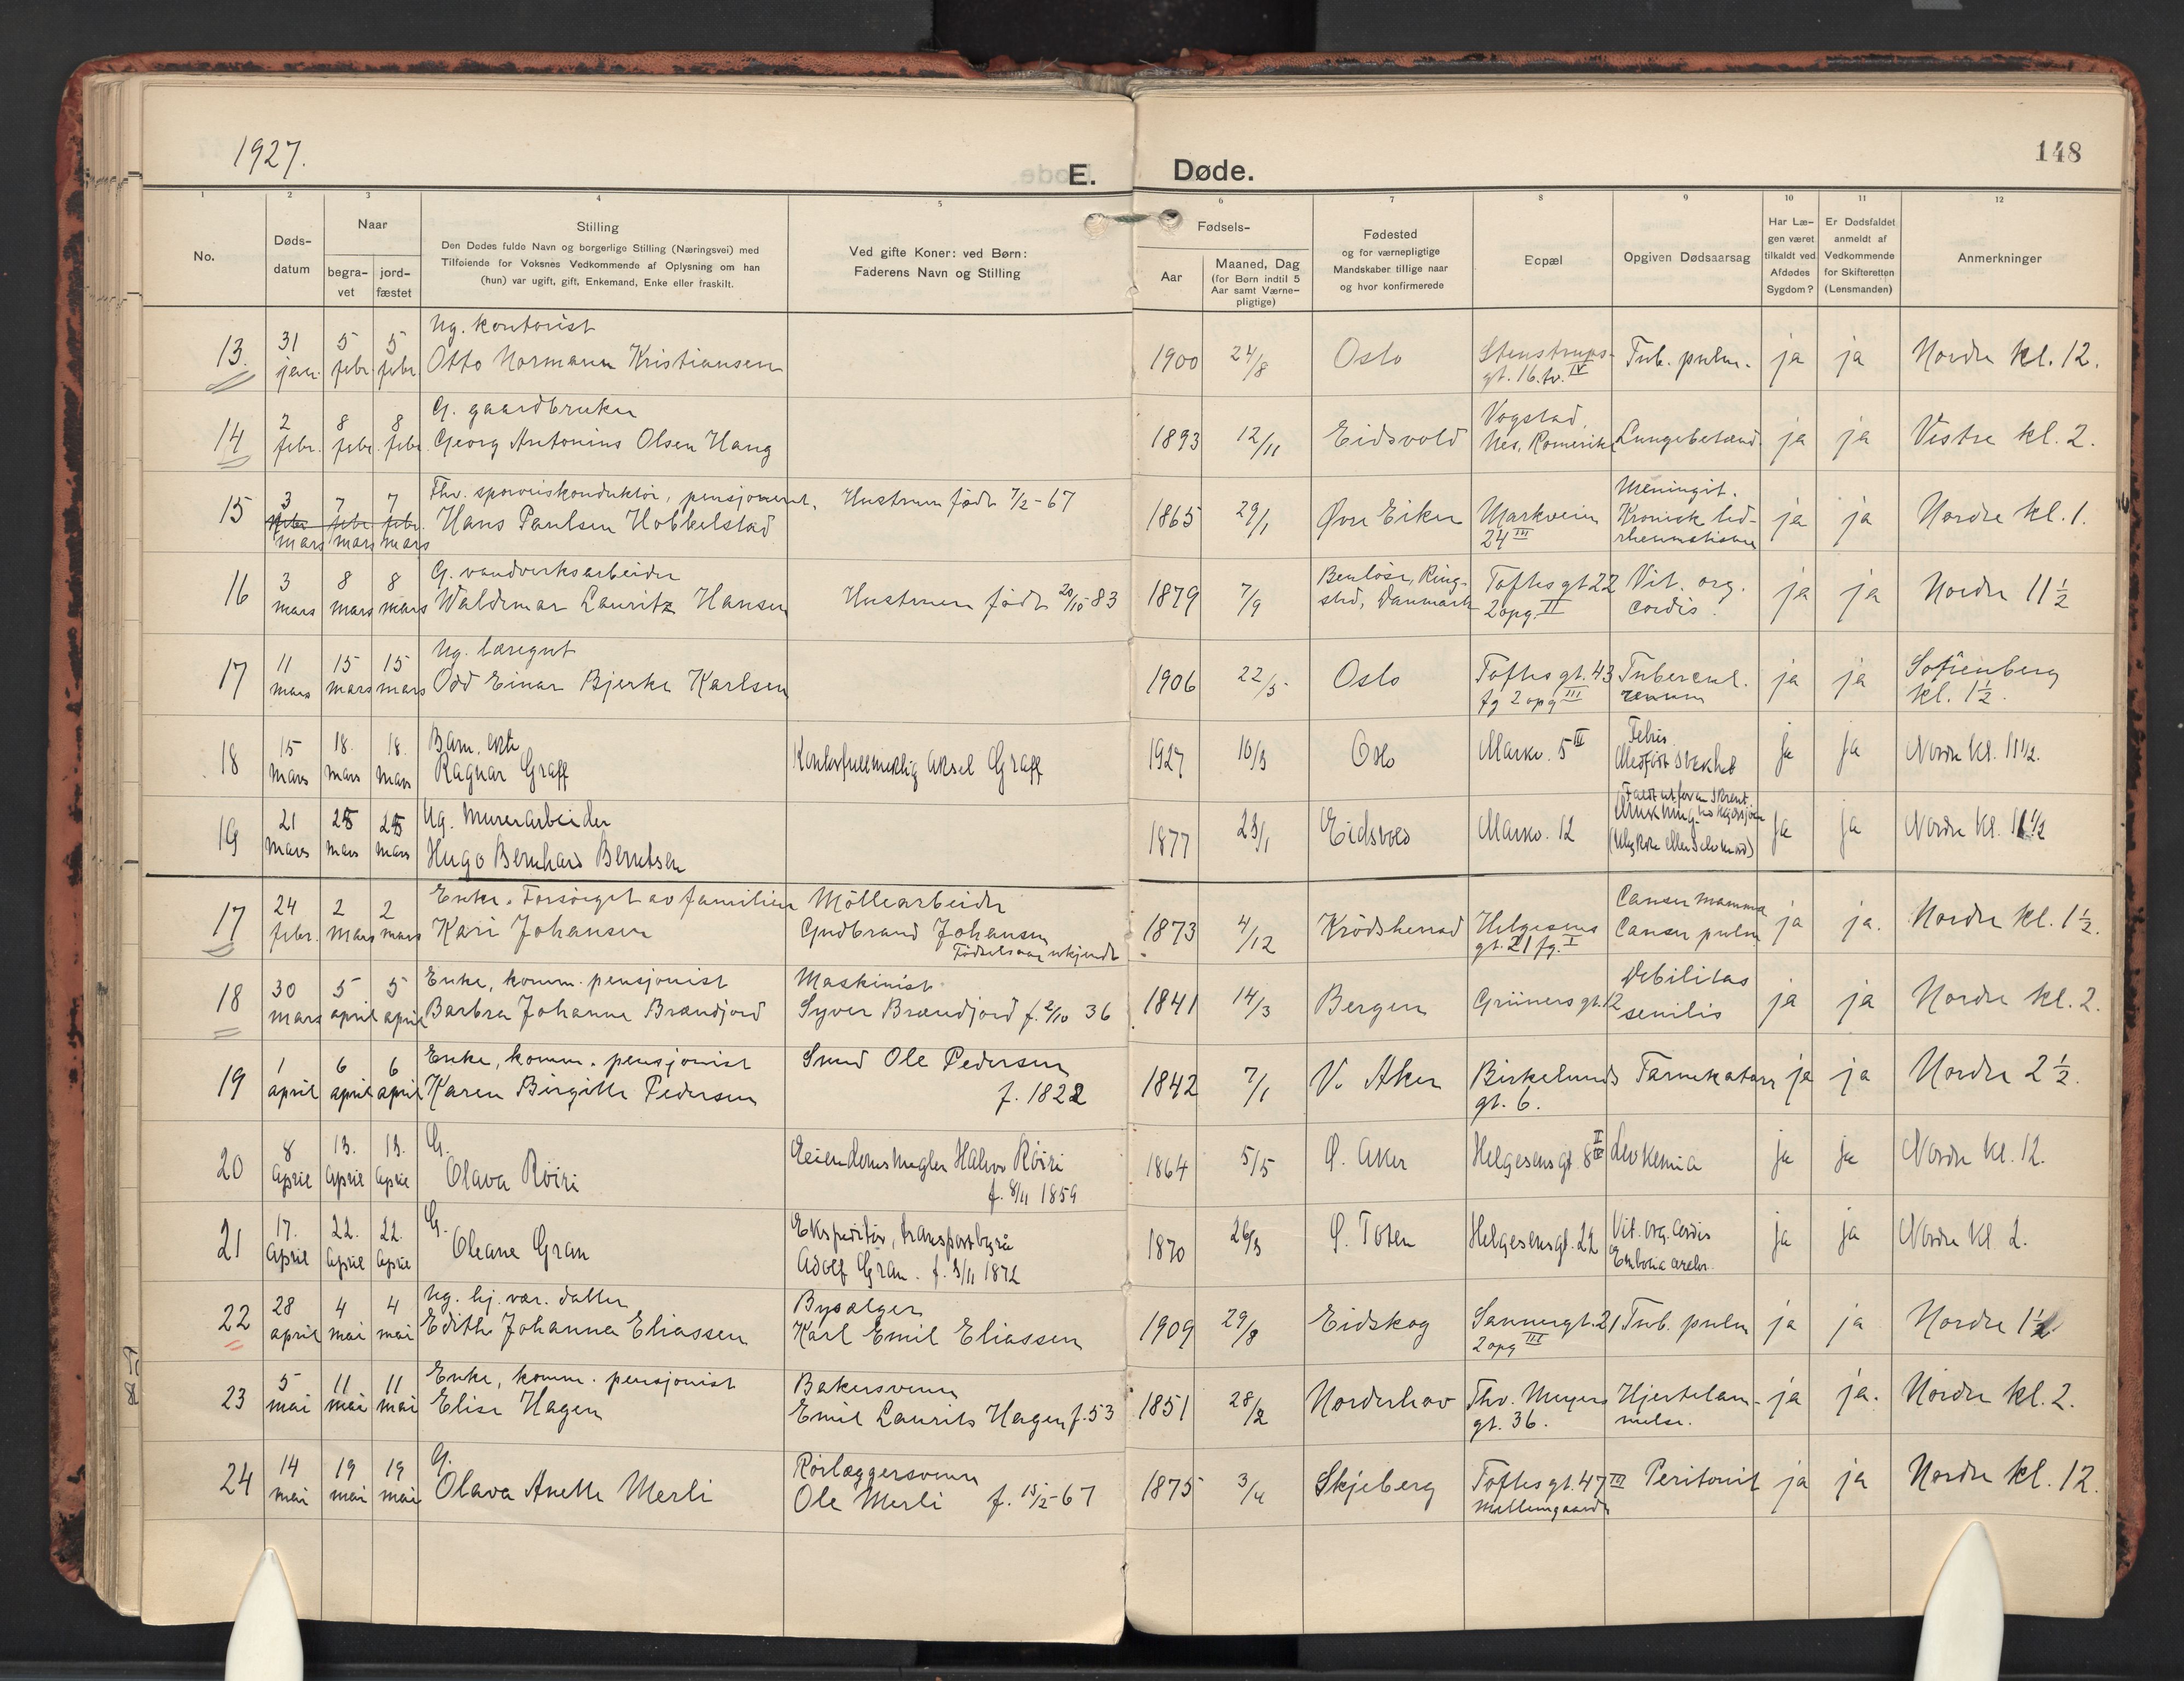 1927.
E. Døde.
148
1 2 3 4 5 6 7 8 9 10 11 12
No.
Døds-
datum
Naar
begra-
vet
jord-
fæstet
Stilling
Den Dødes fulde Navn og borgerlige Stilling (Næringsvei) med
Tilføiende for Voksnes Vedkommende af Oplysning om han
(hun) var ugift, gift, Enkemand, Enke eller fraskilt.
Ved gifte Koner: ved Børn:
Faderens Navn og Stilling
Fødsels-
Aar
Maaned, Dag
(for Børn indtil 5
Aar samt Værne-
pligtige)
Fødested
og for værnepligtige
Mandskaber tillige naar
og hvor konfirmerede
Bopæl
Opgiven Dødsaarsag
Har Læ-
gen været
tilkaldt ved
Afdødes
Sygdom?
Er Dødsfaldet
anmeldt af
Vedkommende
for Skifteretten
(Lensmanden)
Anmerkninger
Ug. kontorist
13. 31 jan. 5 febr 5 febr Otto Normann Kristiansen 1900 24/8 Oslo Stenstrups- Tub. pulm. ja ja Nordre kl. 12.
gt. 16. tv. IV
G. gaardbruker
14 2 febr. 8 febr. 8 febr. Georg Antonius Olsen Haug 1893 12/11 Eidsvold Vogstad, Lungebetænd. ja ja Vestre kl. 2.
Nes, Romerike
Fhv. sporveiskonduktør, pensjonert. Hustruen født 7/2-67
15 3 mars 7 mars 7 mars Hans Paulsen Hobbelstad 1865 29/1 Øvre Eiker Markveien Meningit. ja ja Nordre kl. 1.
24 III Kronisk led-
rheumatisme
G. vandverksarbeider
16 3 mars 8 mars 8 mars Waldemar Lauritz Hansen Hustruen født 20/10 83 1879 7/9 Benløse, Ring- Toftesgt 22 Vit. org. ja ja Nordre 11 1/2
sted, Danmark 2 opg. II cordis.
Ug. læregut
17 11 mars 15 mars 15 mars Odd Einar Bjerke Karlsen 1906 22/5 Oslo Toftesgt. 43 Tubercul. ja ja Sofienberg
fg 2 opg III renum kl. 1 1/2.
Barn, ekte
18 15 mars 18. mars 18. mars Ragnar Graff Kontorfuldmektig Aksel Graff 1927 10/3 Oslo Markv. 5 III Febris ja ja Nordre kl. 11 1/2.
Medfødt svakhet
Ug. Murerarbeider
19 21 mars 25 mars 25 mars Hugo Bernhard Berntsen 1877 23/1 Eidsvold Markv. 12 ja ja Nordre kl. 11 1/2
(Ulykke eller Selvmord)
Enke. Forsørget av familien Möllearbeider
17 24 febr. 2 mars 2 mars Kari Johansen Gudbrand Johansen 1873 4/12 Krödsherad Helgesens Cancer mamma ja ja. Nordre kl. 1 1/2.
Fødselsaar ukjendt gt. 21 fg. I Cancer pulm
Enke, komm. pensjonist Maskinist
18 30 mars 5 april 5 april Barbra Johanne Brandjord Syver Brandjord f. 2/10 36 1841 14/3 Bergen Grünersgt. 12 Debilitas ja ja Nordre kl. 2.
senilis
Enke, komm. pensjonist Smed Ole Pedersen
19 1 april 6 april 6 april Karen Birgitte Pedersen f. 1822 1842 7/1 V. Aker Birkelunds Tarmekatarr ja ja Nordre 2 1/2.
gt. 6.
G.
20 8 april 13. april 13. april Olava Röiri Eiendomsmegler Halvor Röiri 1864 5/5 Ø. Aker Helgesensgt. 8 Levkemia ja ja Nordre kl. 12.
f. 8/11 1859
G.
21 17. april 22. april 22. april Oleane Gran Ekspeditør, transportbyrå 1870 26/3 Ø. Toten Helgesensgt. 22 Vit. org. cordis ja ja Nordre kl. 2.
Adolf Gran. f. 3/11 1872 Embolia
Ug. hj. vær. datter Bysælger
22 28 april 4 mai 4 mai Edith Johanna Eliassen Karl Emil Eliassen 1909 29/8 Eidskog Sannergt. 21 Tub. pulm ja ja Nordre 1 1/2.
2 opg III
Enke, komm. pensjonist Bakersvenn
23 5 mai 11 mai 11 mai Elise Hagen Emil Laurits Hagen f. 53 1851 28/2 Norderhov Thv. Meyers Hjertelam- ja ja. Nordre kl. 2.
gt. 36. melse.
G. Rørlæggersvenn
24 14 mai 19 mai 19 mai Olava Anette Merli Ole Merli f. 15/2-67 1875 3/4 Skjeberg Toftesgt. 47 III Peritonit ja ja Nordre kl. 12.
Mellemgaarden